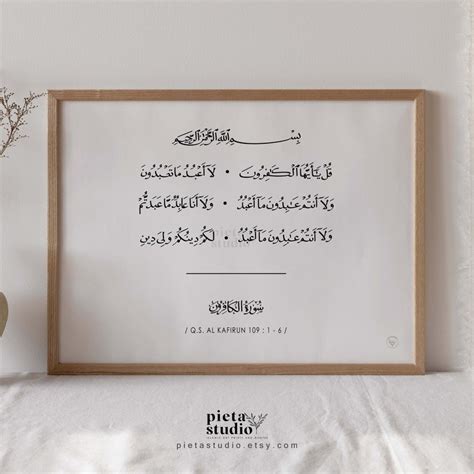 بِسْمِ ٱللَّهِ ٱلرَّحْمَٰنِ ٱلرَّحِيمِ
قُلْ يَٰٓأَيُّهَا ٱلْكَٰفِرُونَ • لَآ أَعْبُدُ مَا تَعْبُدُونَ
وَلَآ أَنتُمْ عَٰبِدُونَ مَآ أَعْبُدُ • وَلَآ أَنَا۠ عَابِدٌ مَّا عَبَدتُّمْ
وَلَآ أَنتُمْ عَٰبِدُونَ مَآ أَعْبُدُ • لَكُمْ دِينُكُمْ وَلِىَ دِينِ
pieta
studio
سورة الكافرون
/ Q.S. AL KAFIRUN 109 : 1 - 6 /
pieta
studio
pietastudio.etsy.com